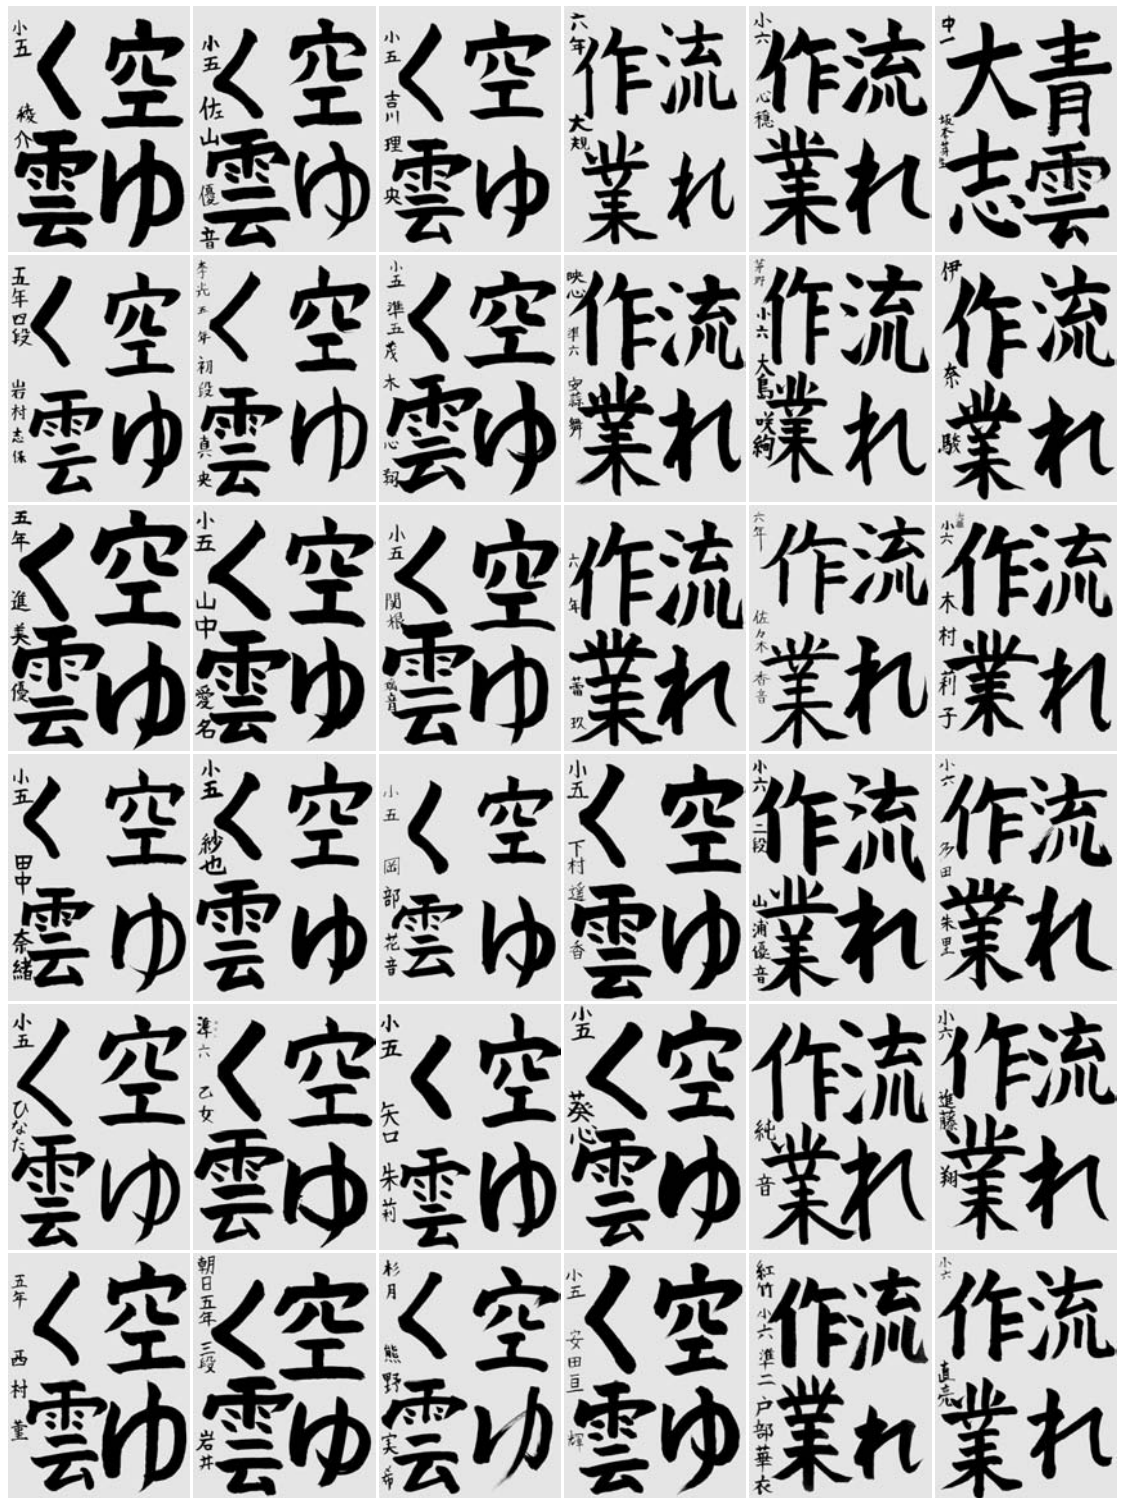 空ゆ
く雲
小五 綾介
空ゆ
く雲
小五 佐山優音
空ゆ
く雲
小五 吉川理央
流れ
作業
六年 大規
流れ
作業
小六 心穂
青雲
大志
中一 坂本芽生
空ゆ
く雲
五年四段 岩村志保
空ゆ
く雲
李光五年初段 真央
空ゆ
く雲
小五準五 茂木心翔
流れ
作業
映心準六 安藤舞
流れ
作業
茅野小六 大島咲絢
流れ
作業
伊奈駿
空ゆ
く雲
五年 進美優
空ゆ
く雲
小五 山中愛名
空ゆ
く雲
小五 関根 音
流れ
作業
六年 蕾玖
流れ
作業
六年 佐々木香音
流れ
作業
小六 木村莉子
空ゆ
く雲
小五 田中奈緒
空ゆ
く雲
小五 紗也
空ゆ
く雲
小五 岡部花音
空ゆ
く雲
小五 下村遥香
流れ
作業
小六二段 山浦優音
流れ
作業
小六 多田朱里
空ゆ
く雲
小五 ひなた
空ゆ
く雲
準六 乙女
空ゆ
く雲
小五 矢口朱莉
空ゆ
く雲
小五 葵心
流れ
作業
純音
流れ
作業
小六 進藤翔
空ゆ
く雲
五年 西村菫
空ゆ
く雲
朝日五年三段 岩井
空ゆ
く雲
杉月 熊野実希
空ゆ
く雲
小五 安田亘輝
流れ
作業
紅竹小六準二 戸部華衣
流れ
作業
小六 直亮